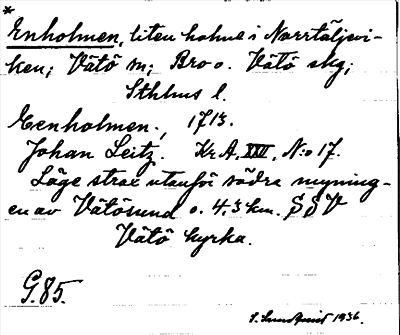 *
Enholmen, liten holme i Norrtäljevi-
ken; Vätö sn; Bro o. Vätö skg;
Sthlms l.
Eenholmen., 1713.
Johan Leitz. Kr. A, XXII, N:o 17.
Läge strax utanför södra mynning-
en av Vätösund o. 4.3 km. SSV
Vätö kyrka.
G.85.
S. Sundquist 1936.